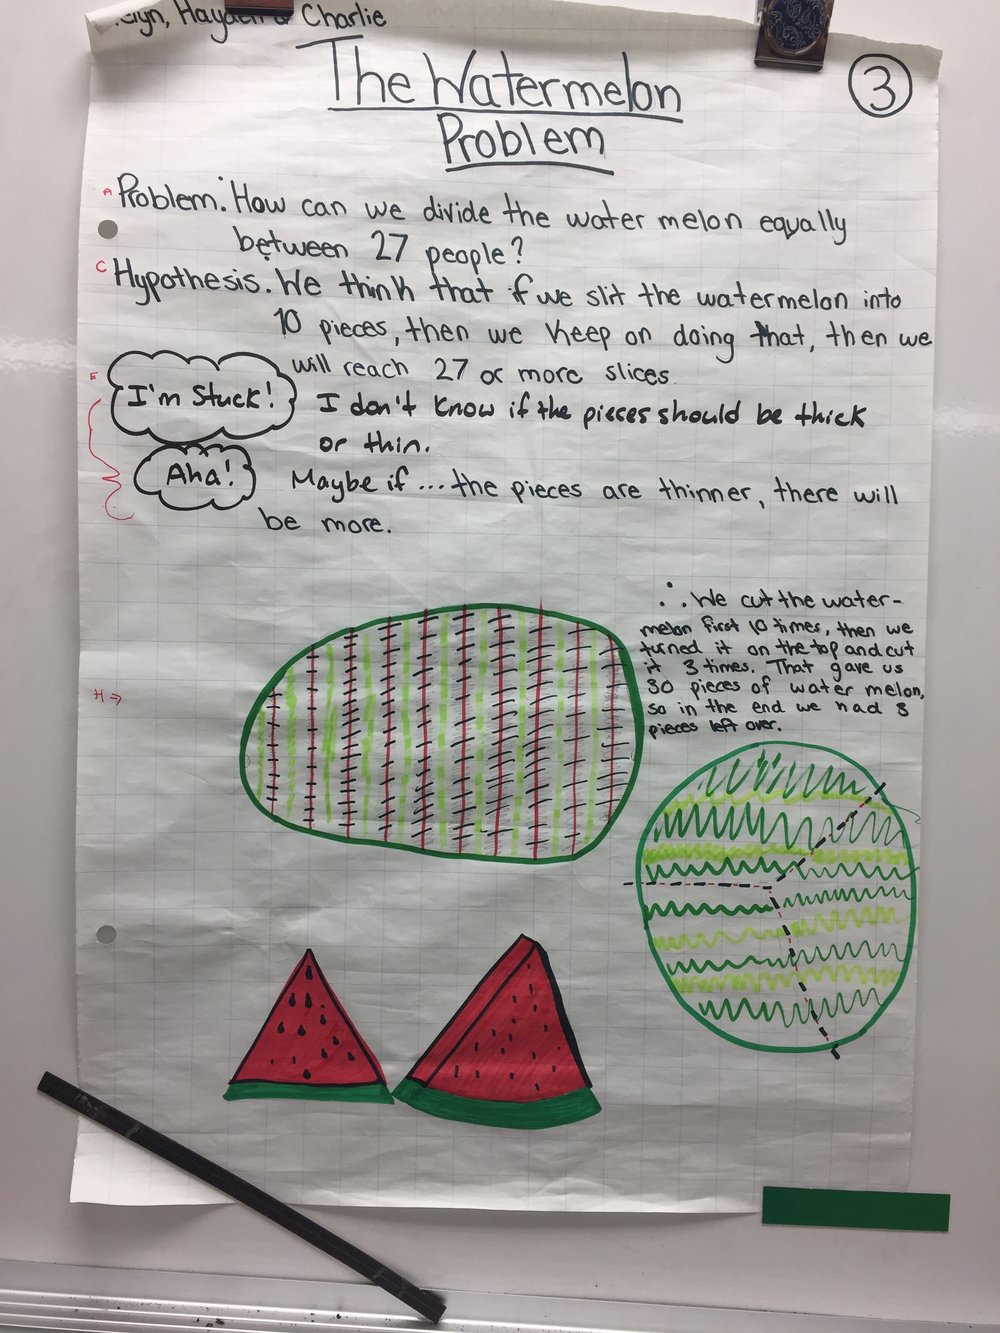 Hayden & Charlie
The Watermelon
Problem
3
A Problem: How can we divide the water melon equally
between 27 people?
C Hypothesis. We think that if we slit the watermelon into
10 pieces, then we keep on doing that, then we
will reach 27 or more slices.
I'm Stuck! I don't know if the pieces should be thick
or thin.
Aha! Maybe if... the pieces are thinner, there will
be more.
∴ We cut the water-
melon first 10 times, then we
turned it on the top and cut
it 3 times. That gave us
30 pieces of water melon,
so in the end we had 3
pieces left over.
H →